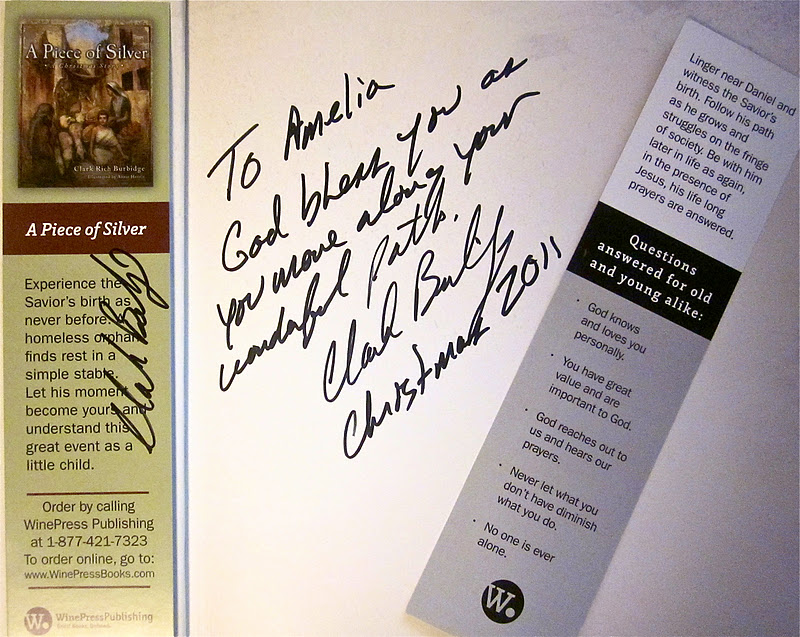 A Piece of Silver
A Christmas Story
Clark Rich Burbidge
A Piece of Silver
Experience the
Savior's birth as
never before.
homeless orphan
finds rest in a
simple stable.
Let his moment
become yours and
understand this
great event as a
little child.
Order by calling
WinePress Publishing
at 1-877-421-7323
To order online, go to:
www.WinePressBooks.com
W.
WinePressPublishing
To Amelia
God bless you as
you move along your
wonderful path.
Clark Burbidge
Christmas 2011
Linger near Daniel and
witness the Savior's
birth. Follow his path
as he grows and
struggles on the fringe
of society. Be with him
later in life as again,
in the presence of
Jesus, his life long
prayers are answered.
Questions
answered for old
and young alike:
· God knows
and loves you
personally.
· You have great
value and are
important to God.
· God reaches out to
us and hears our
prayers.
· Never let what you
don't have diminish
what you do.
· No one is ever
alone.
W.